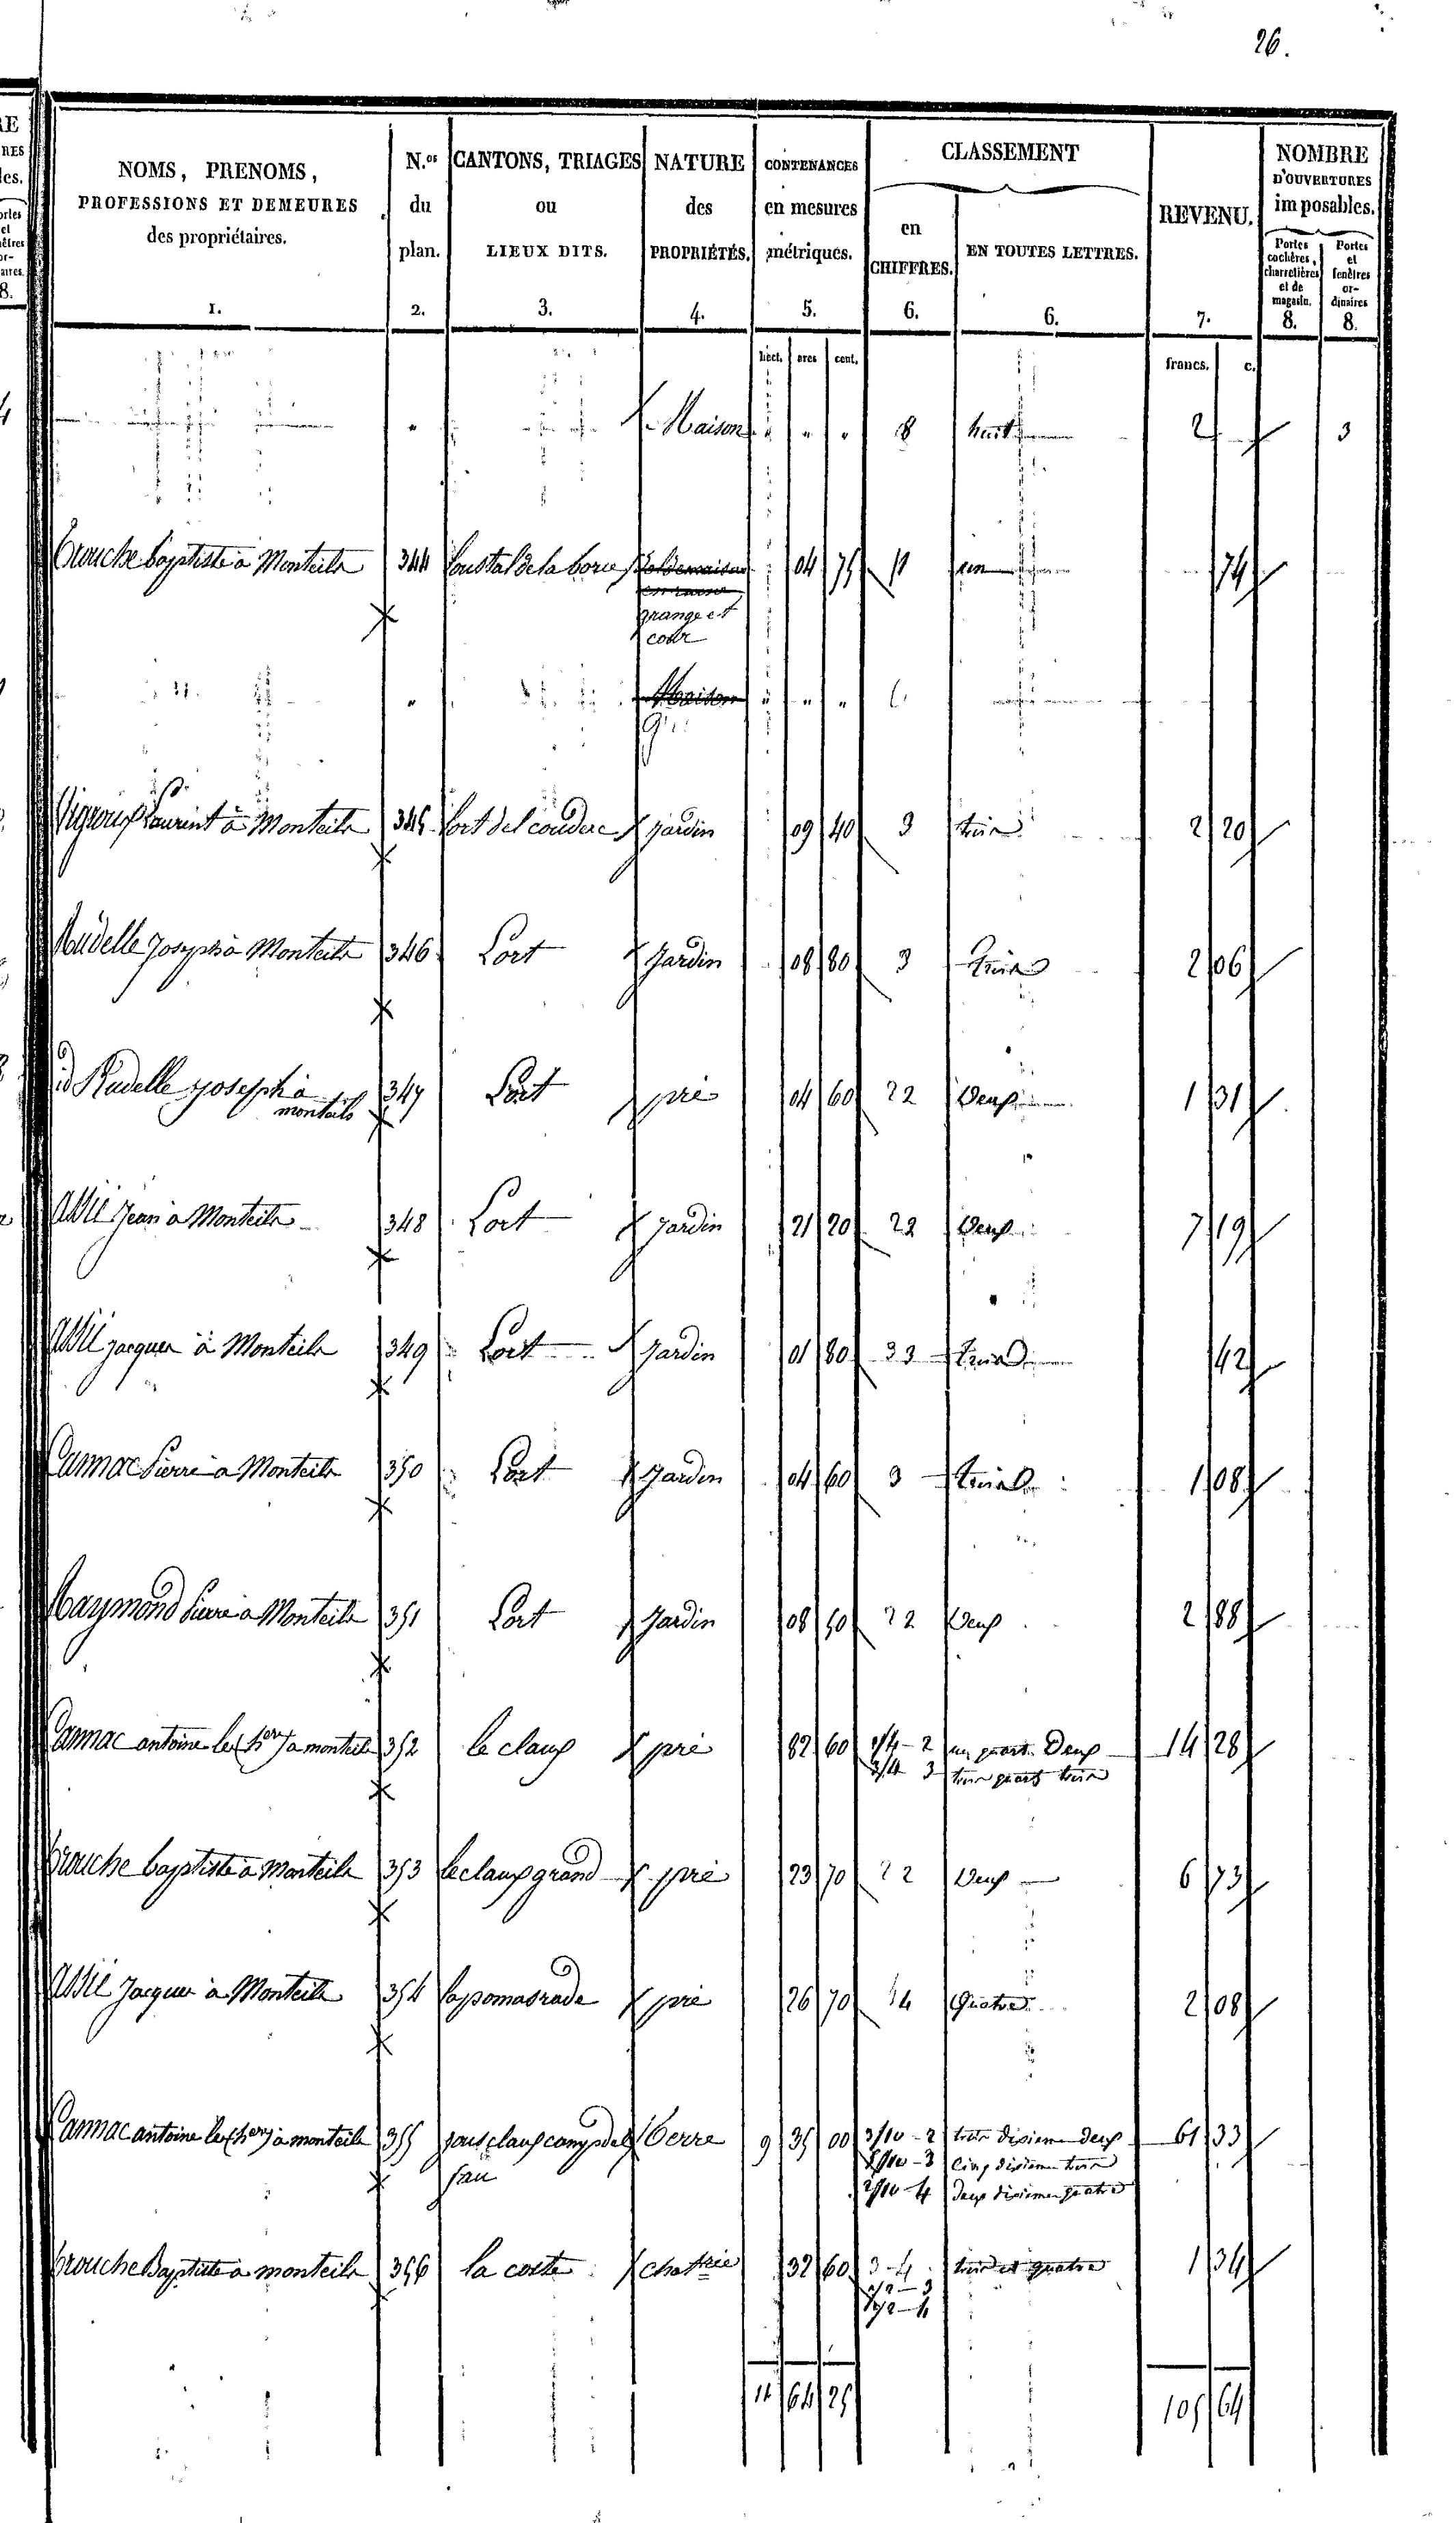 26.
NOMS, PRENOMS, PROFESSIONS ET DEMEURES des propriétaires. 1.
N.os du plan. 2.
CANTONS, TRIAGES ou LIEUX DITS. 3.
NATURE des PROPRIÉTÉS. 4.
CONTENANCES en mesures métriques. 5.
CLASSEMENT
en CHIFFRES. 6.
EN TOUTES LETTRES. 6.
REVENU. 7.
NOMBRE D'OUVERTURES imposables.
Portes cochères, charretières et de magasin. 8.
Portes et fenêtres ordinaires 8.
hect. ares cent. francs. c.
" Maison " " " 8 huit 2 3
Trouche baptiste à Monteils 344 Loustal de la borie 04 75 1 un 74
grange et
cour
" Maison " " "
Vigroux Laurent à Monteils 345 Lort del couderc jardin 09 40 3 trois 2 20
Rudelle Joseph à Monteils 346 Lort Jardin 08 80 3 trois 2 06
id Rudelle joseph à monteils 347 Lort pré 04 60 2 2 Deux 1 31
Assié Jean à Monteils 348 Lort Jardin 21 20 2 2 Deux 7 19
Assié jacques à Monteils 349 Lort Jardin 01 80 3 3 trois 42
Cannac Pierre à Monteils 350 Lort Jardin 04 60 3 trois 1 08
Raymond Pierre à Monteils 351 Lort Jardin 08 50 2 2 Deux 2 88
Cannac antoine les (hers) à monteils 352 le claux pré 82 60 1/4 - 2 un quart Deux 14 28
3/4 3 trois quarts trois
Trouche baptiste à Monteils 353 le claux grand pré 23 70 2 2 Deux 6 73
Assié Jacques à Monteils 354 la pomarade pré 26 70 4 Quatre 2 08
Cannac antoine les (hers) à monteils 355 jous claux camp del terre 9 35 00 3/10 - 2 trois dixiemes deux 61 33
fau 5/10 - 3 cinq dixiemes trois
2/10 - 4 deux dixiemes quatre
Trouche Baptiste à monteils 356 la coste 32 60 3 - 4 trois et quatre 1 34
1/2 - 3
1/2 - 4
11 64 25 105 64